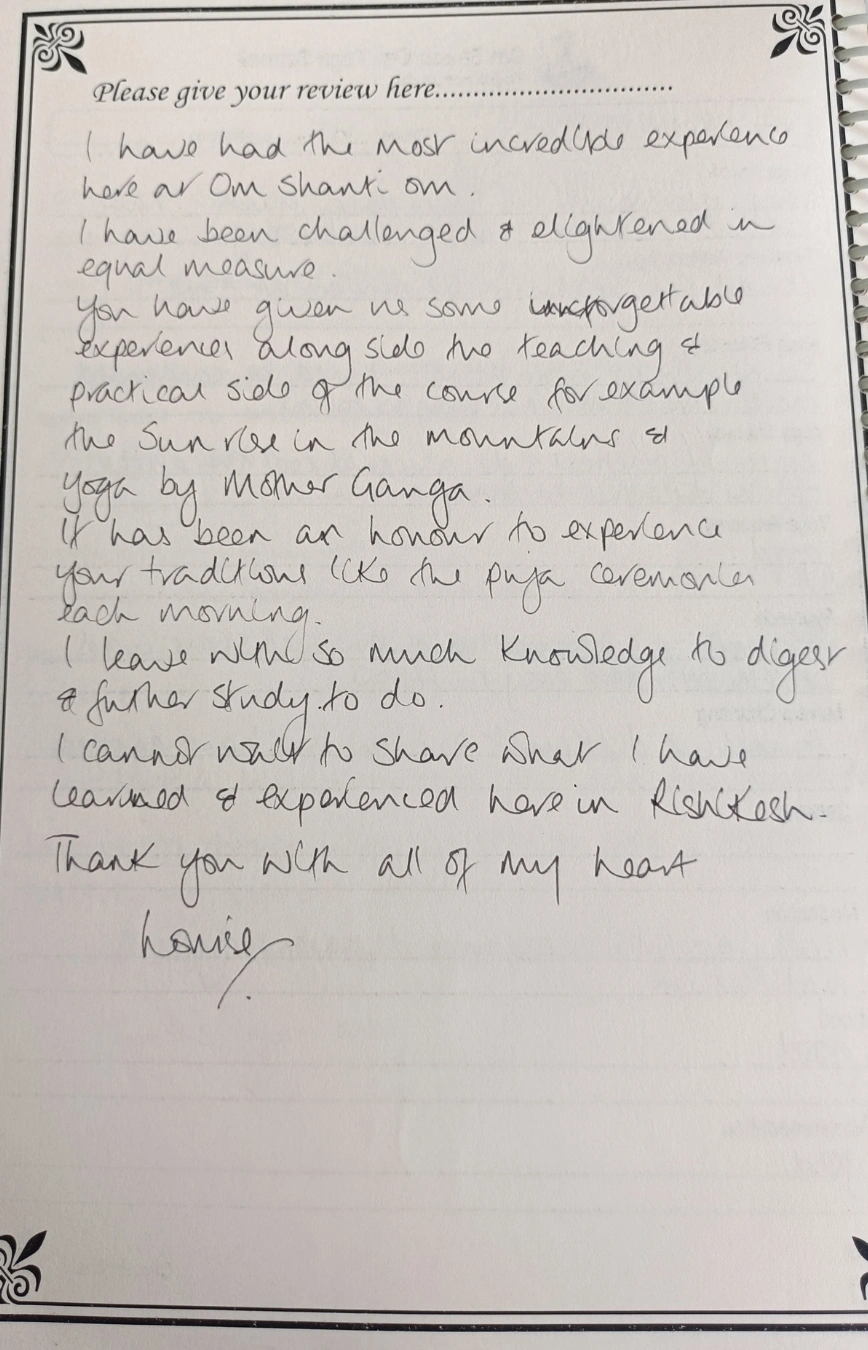 Please give your review here..............................
I have had the most incredible experience
here at Om Shanti om.
I have been challenged & elightened in
equal measure.
You have given us some unforgettable
experiences along side the teaching &
practical side of the course for example
the Sun rise in the mountains &
yoga by Mother Ganga.
It has been an honour to experience
your traditions like the puja ceremonies
each morning.
I leave with so much knowledge to digest
& further study to do.
I cannot wait to share what I have
learned & experienced here in Rishikesh.
Thank you with all of my heart
Louise